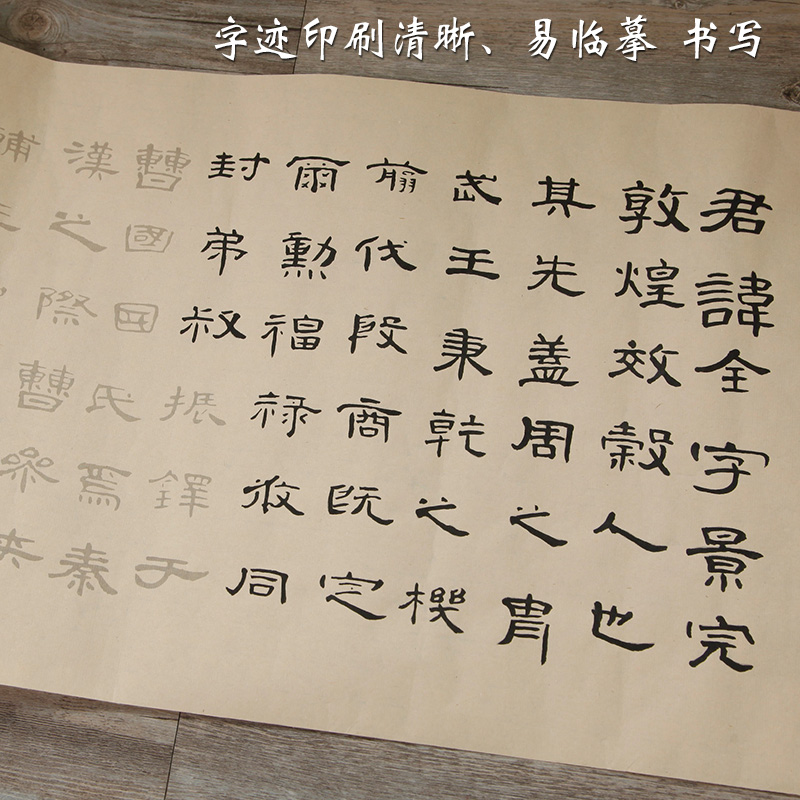 字迹印刷清晰、易临摹 书写
君諱全字景完
敦煌效穀人也
其先蓋周之胄
武王秉乾之機
翦伐殷商既定
爾勳福祿攸同
封弟叔振鐸于
曹國因氏焉秦
漢之際曹參夾